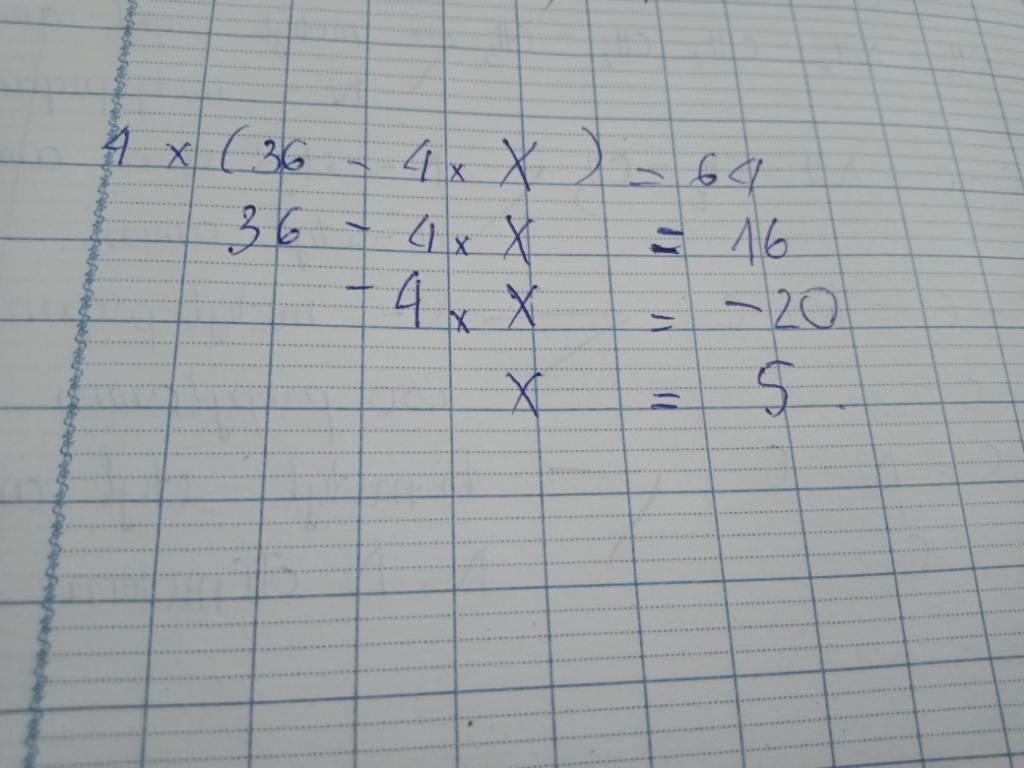 4 x (36 - 4 x X) = 64
36 - 4 x X = 16
- 4 x X = -20
X = 5.